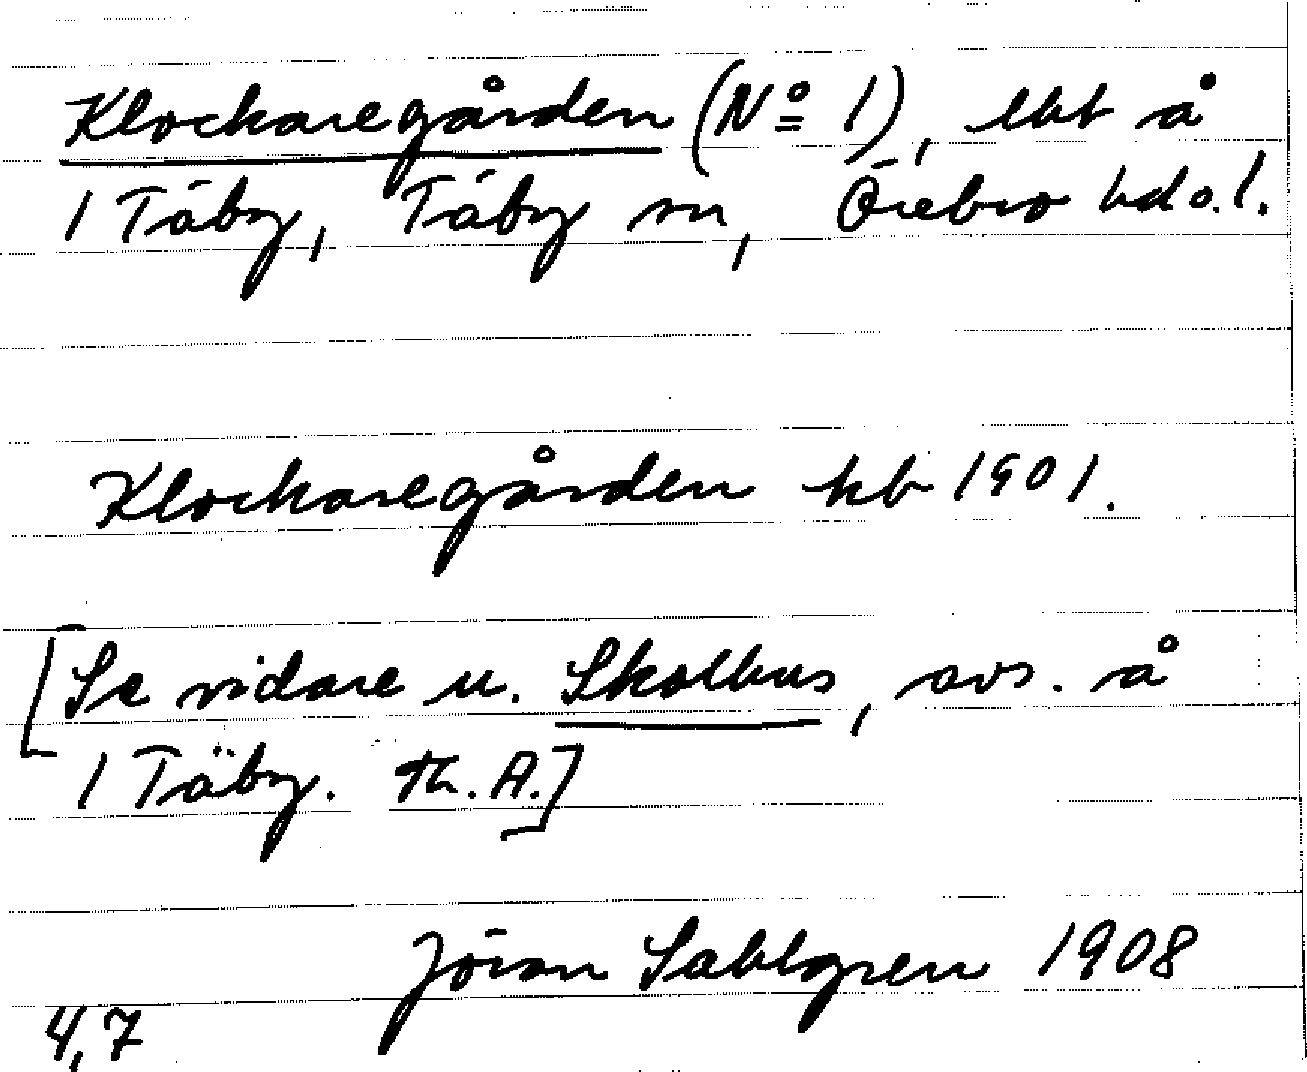 Klockaregården (Nº 1), lht å
1 Täby, Täby sn, Örebro hd o. l.
Klockaregården kb 1901.
[Se vidare u. Skolhus, avs. å
1 Täby. Th. A.]
Jöran Sahlgren 1908
4,7